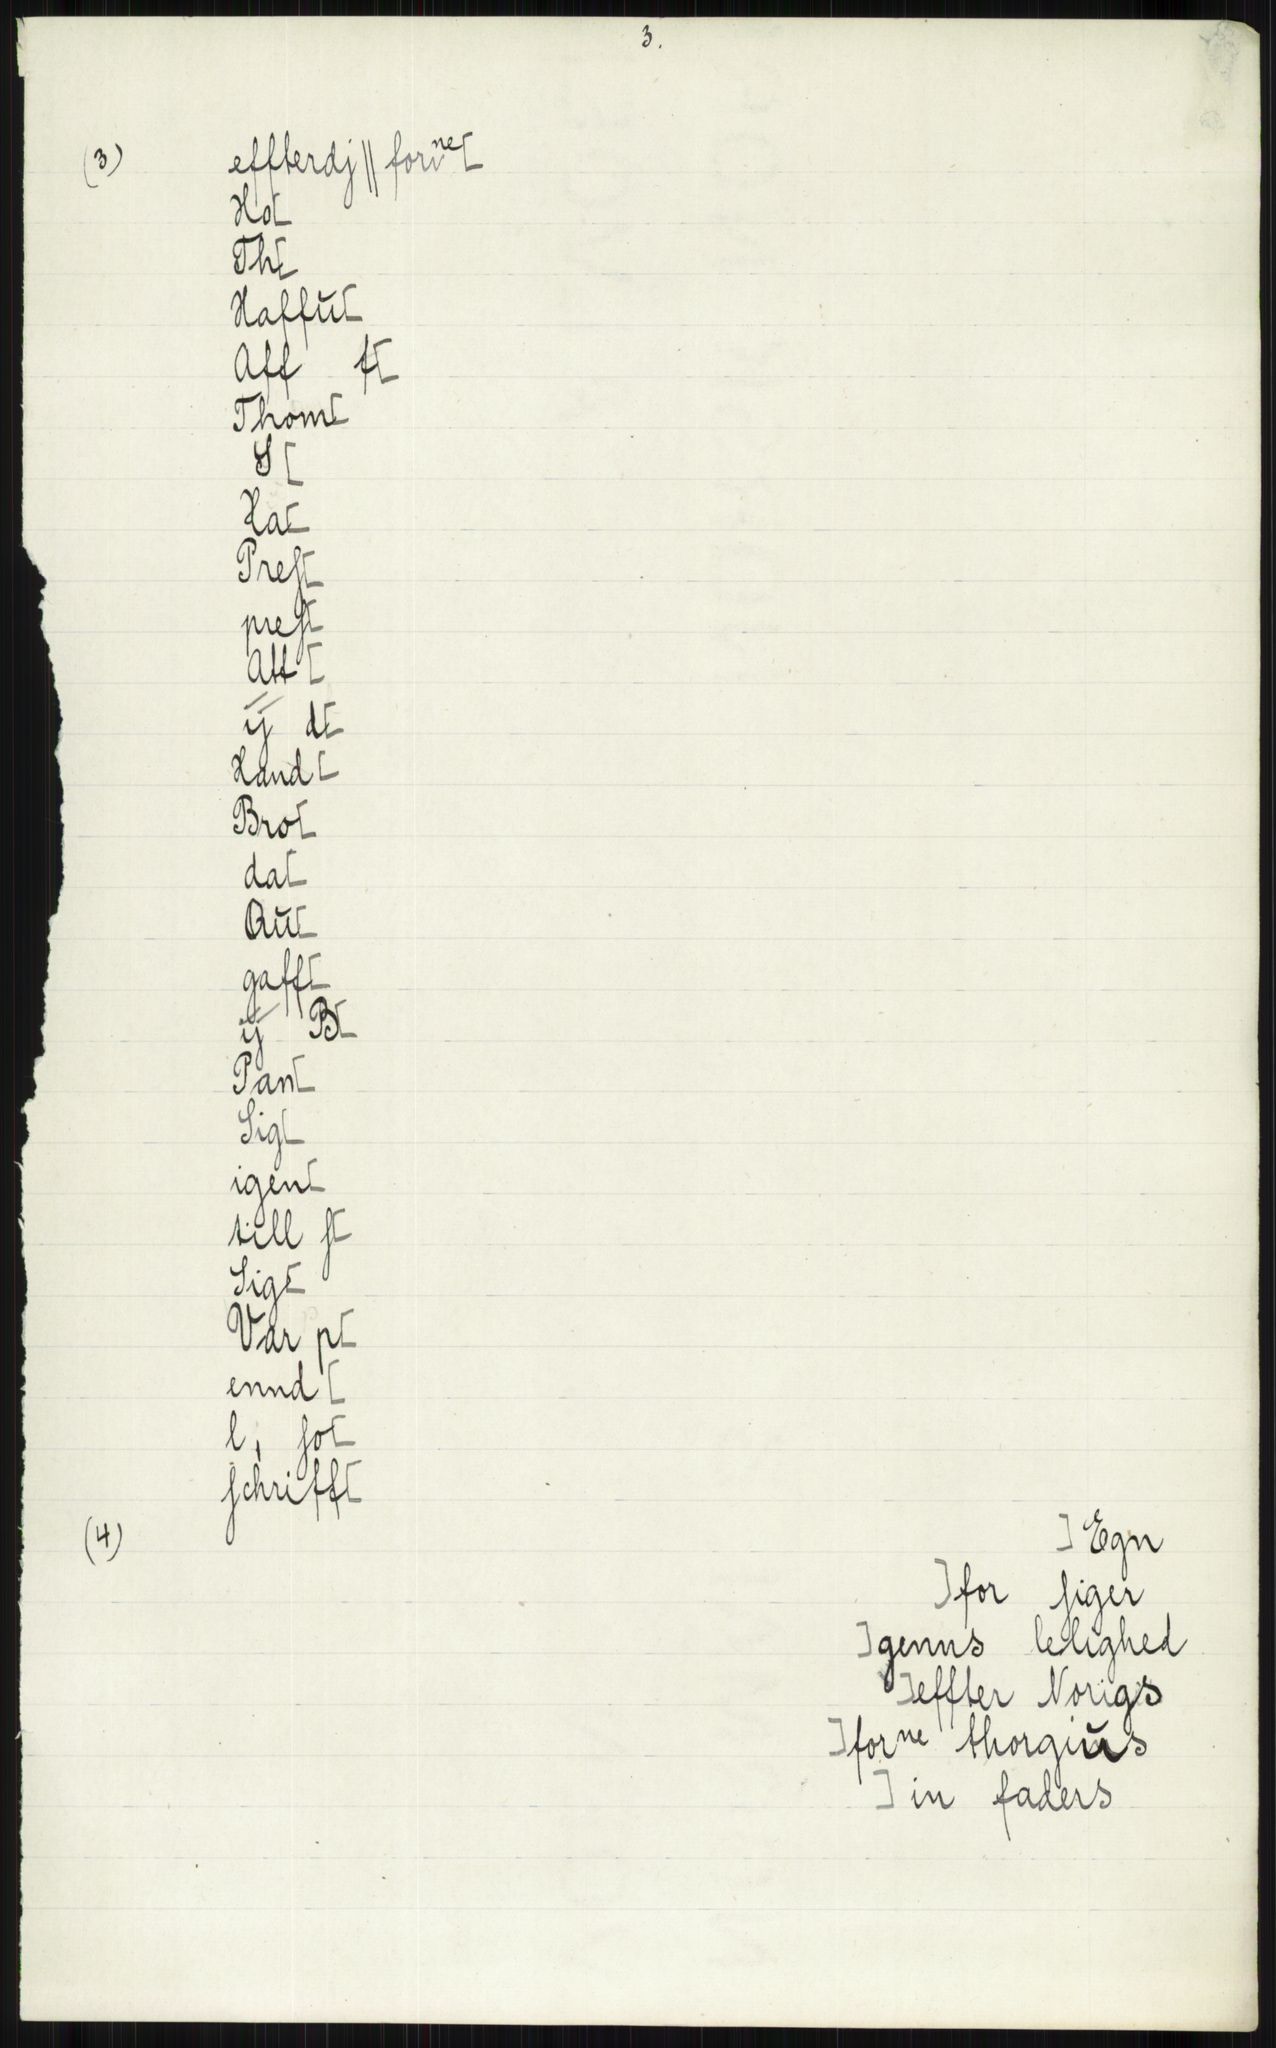 3.
(3) effterdj || forne[
Ho[
Th[
Haffŭ[
Aff f[
Thom[
S [
Ha[
Preſ[
preſ[
Att [
ij d[
Hand [
Bro[
da[
Aŭ[
gaff[
ij B[
Pan[
Sig[
igen[
till ſ[
Sig[
Var p[
ennd [
l, ſo[
ſchriff[
(4) ] Egn
]for ſiger
]genns leilighed
]effter Norigs
]forne thorgiŭs
] in faders